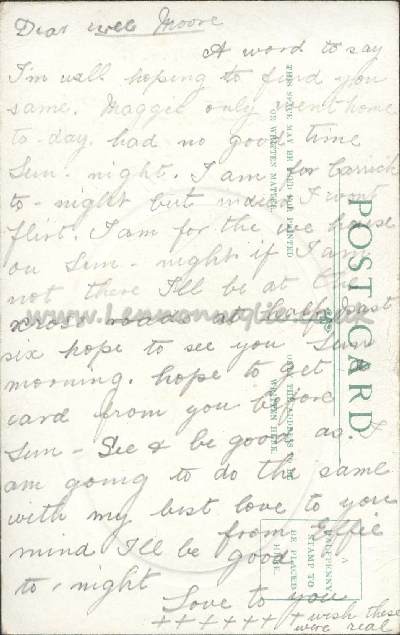 Dear wee Moore
A word to say
I'm well hoping to find you
same. Maggie only went home
to-day. had no good time
Sun-night. I am for Carrick
to-night but mind I wont
flirt. I am for the wee house
on Sun-night if I am
not there I'll be at the
xross roads at half past
six hope to see you Sun
morning. hope to get a
card from you before
Sun- See & be good as I
am going to do the same
with my best love to you
from Effie
mind I'll be good
to-night
Love to you
+ + + + + + + wish these
were real
POST CARD.
THIS SPACE MAY BE USED FOR PRINTED
OR WRITTEN MATTER.
ONLY THE ADDRESS TO BE
WRITTEN HERE.
A
HALFPENNY
STAMP TO
BE PLACED
HERE.